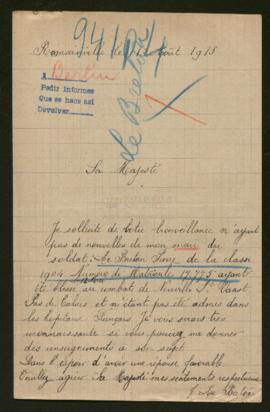 9417
Romainville le 12 août 1915
A Berlin
Pedir informes
Que se haga así
Devolver
Le Breton
Sa Majesté
Je sollicite de votre bienveillance n'ayant
pas de nouvelles de mon mari du
soldat Le Breton de la classe
1904 Numéro de Matricule 17,775 ayant
été blessé au combat de Neuville St Vaast
Pas de Calais et n'étant pas été admis dans
les hopitaux français Je vous serais très
reconnaissante si vous pouviez me donner
des renseignements a son sujet
Dans l'espoir d'avoir une réponse favorable
Veuillez agréer Sa Majesté mes sentiments respectueux